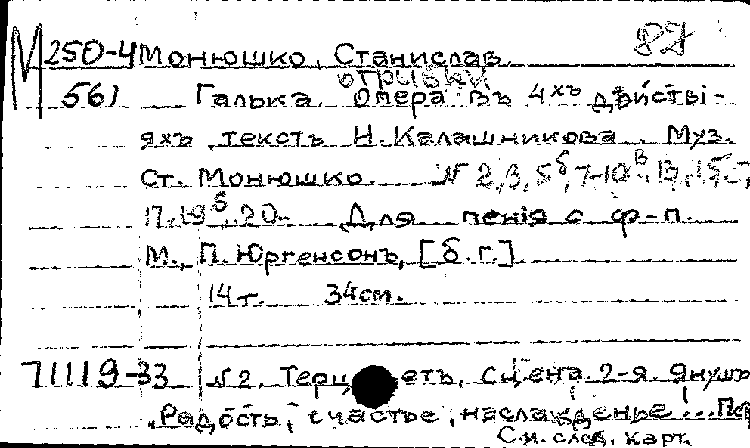 М 250-4 Монюшко, Станислав. 87
561 отрывки
Галька. Опера въ 4хъ дѣйстві-
яхъ, текстъ Н. Калашникова. Муз.
Ст. Монюшко. № 2,3,5б,7-10в,13,15б,
17,19б,20. Для пенія с ф-п.
М., П. Юргенсонъ, [б.г.]
14 т. 34 см.
71119-33 №2. Терц етъ, сцена 2-я. Янушъ
"Радость, счастье, наслажденье...
См. след. карт.